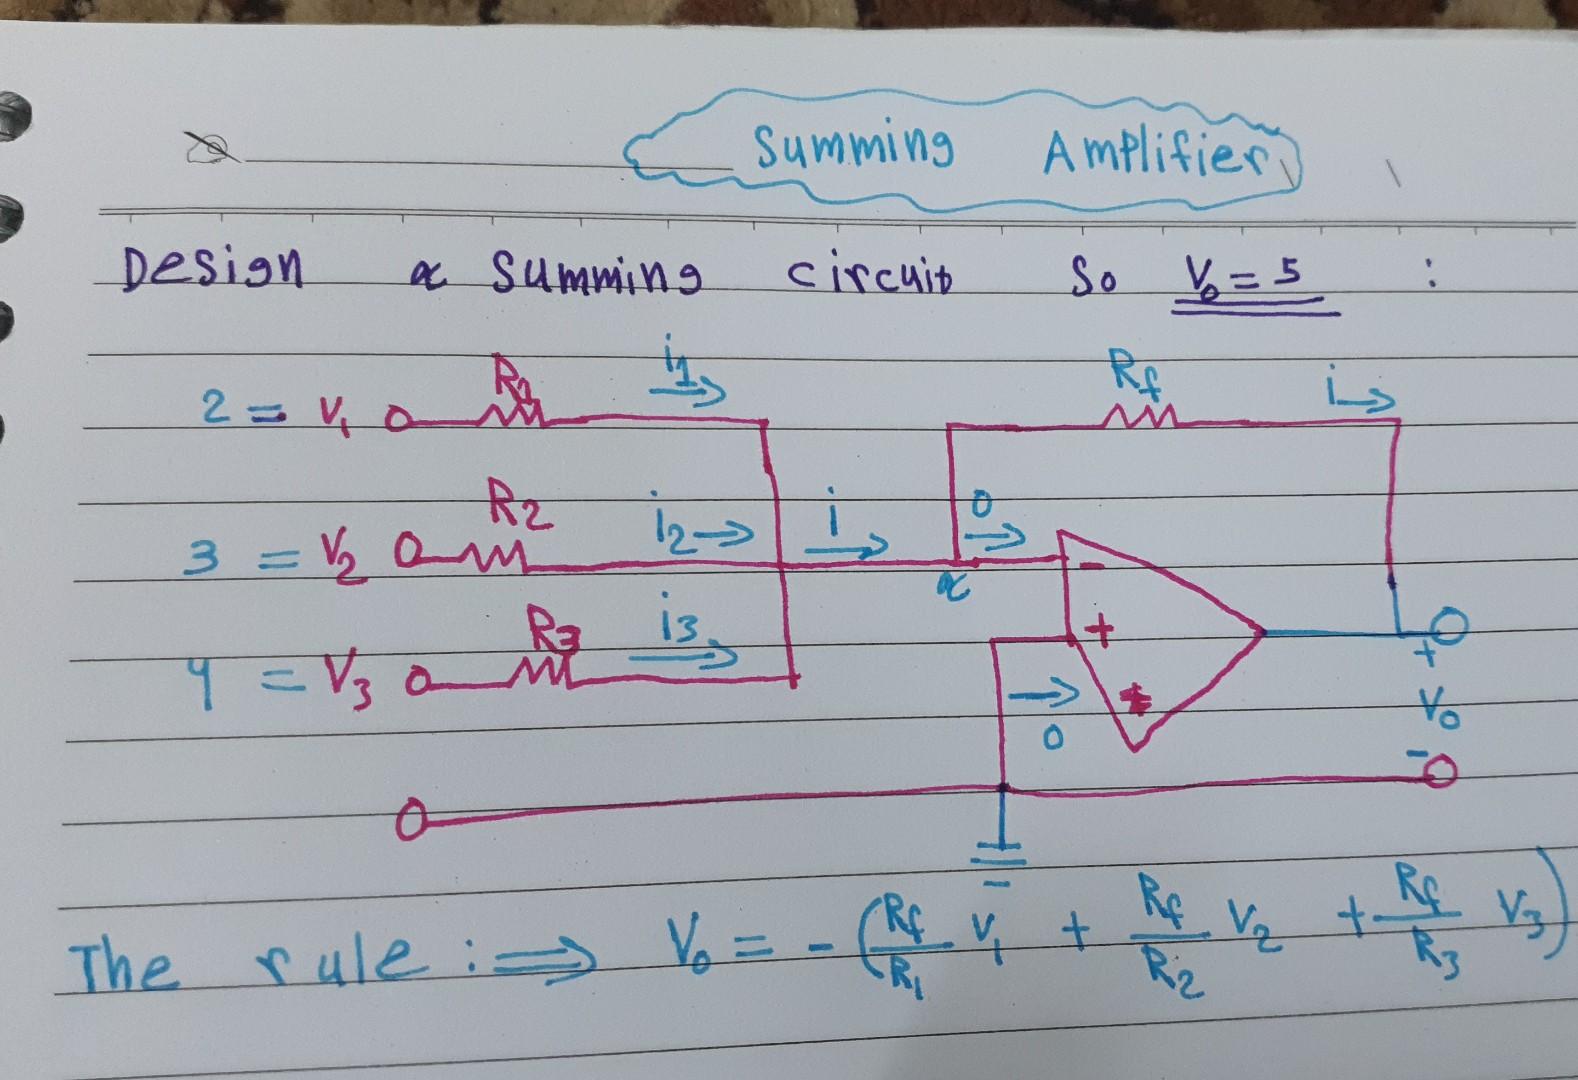 Summing Amplifier
Design a summing circuit so V₀ = 5 :
R1 i1 Rf i
2 = V₁
R2 i2 i 0
3 = V2 -
a
R3 i3 +
4 = V3 +
0 V₀
-
The rule : ⟹ V₀ = - (Rf/R₁ V₁ + Rf/R2 V2 + Rf/R3 V3)